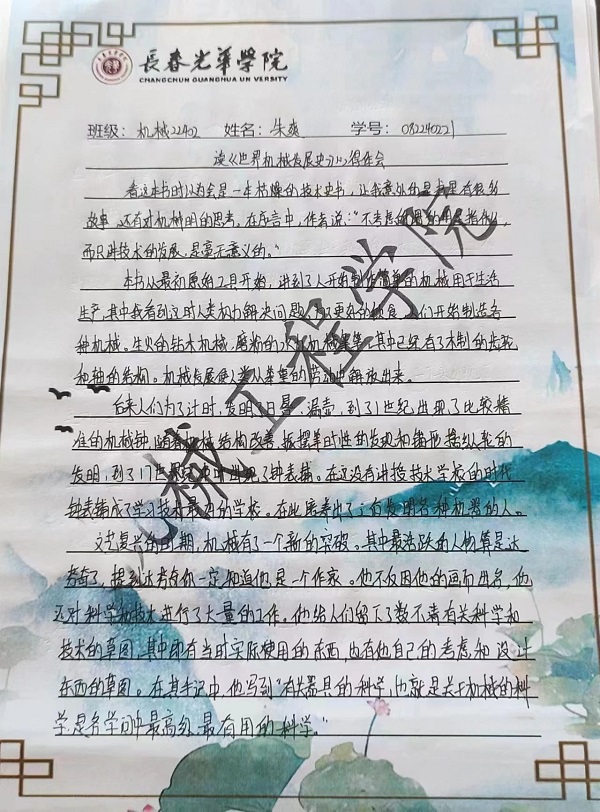 長春光華學院
CHANGCHUN GUANGHUA UNIVERSITY
班级：机械22402 姓名：朱爽 学号：08224022
读《世界机械发展史》心得体会
看这本书时以为会是一本枯燥的技术史书，让我意外的是书里有很多
故事，还有对机械的思考，在序言中，作者说："不考虑
而只讲技术的发展，是毫无意义的。"
本书从最初原始工具开始，讲到了人开始制作简单的机械用于生活
生产，其中我看到这时人类为了解决问题 更好的 们开始制造各
种机械。生火的钻木机械，磨粉的 机械 等，其中已经有了木制的齿轮
和轴的结构。机械发展使人类从笨重的劳动中解放出来。
后来人们为了计时，发明了日晷，漏壶，到了 世纪出现了比较精
准的机械钟，随着机械结构改善，振摆等时性的发现和 轮的
发明，到了17世纪 出现了钟表铺。在还没有讲授技术学校的时代
钟表铺成了学习技术最好的学校。在此培养出了 发明各种机器的人。
文艺复兴的时期，机械有了一个新的突破。其中最活跃的人物算是达
芬奇了，提到达芬奇你一定知道他是一个作家。他不仅因他的画而出名，他
还对科学和技术进行了大量的工作。他给人们留下了数不清有关科学和
技术的草图，其中即有当时实际使用的东西，也有他自己的考虑和设计
东西的草图。在其手记中，他写到"有关器具的科学，也就是关于机械的科
学，是各学问中最高级，最有用的科学。"
机械工程学院